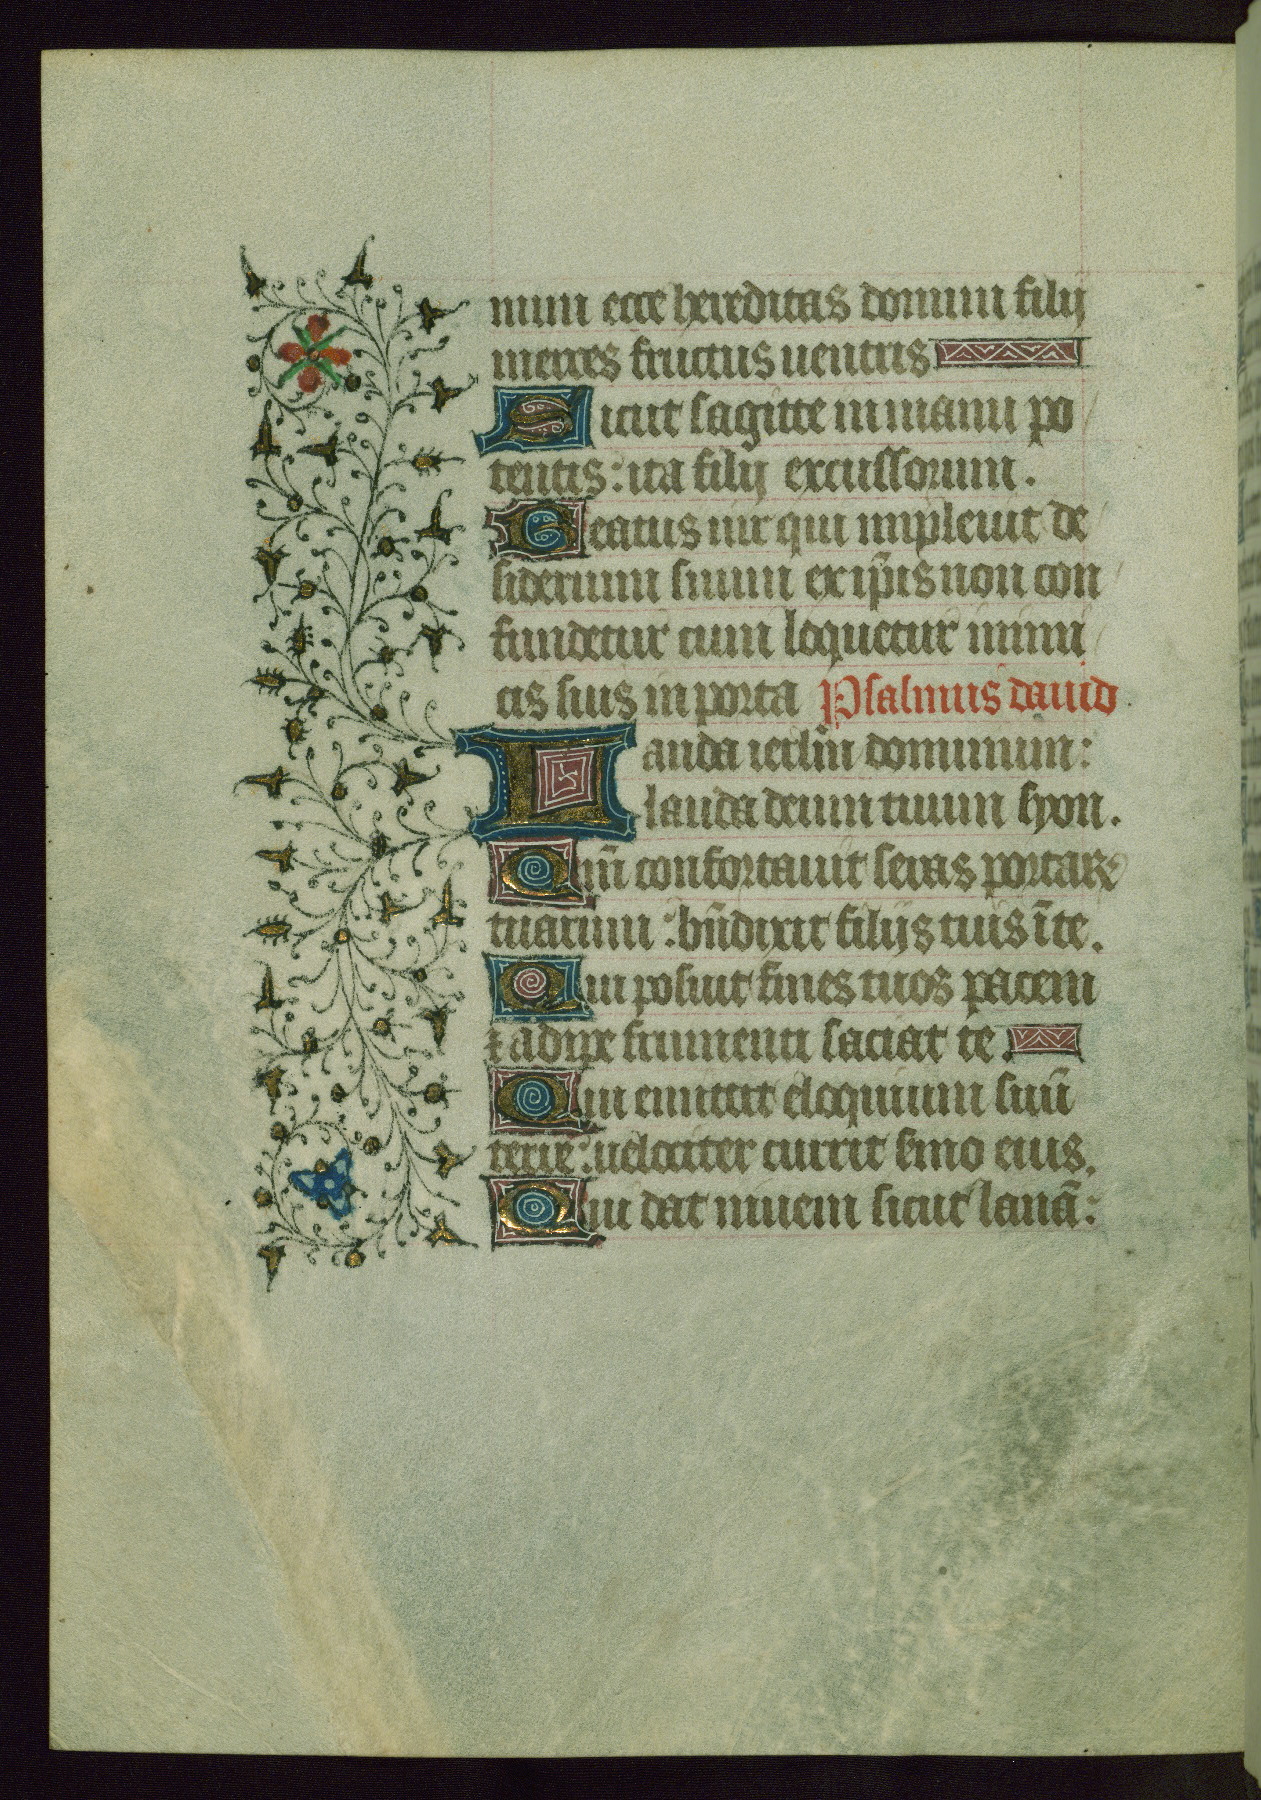 num ecce hereditas domini filij
merces fructus uentris
Sicut sagitte in manu po
tentis: ita filij excussorum.
Beatus uir qui impleuit de
siderium suum ex ip̄is non con
fundetur cum loquetur inimi
cis suis in porta Psalmus dauid.
Lauda ierl̄m dominum:
lauda deum tuum syon.
Qm̄ confortauit seras portar
tuarum: bn̄dixit filijs tuis ī te.
Qui posuit fines tuos pacem
⁊ adipe frumenti saciat te.
Qui emittit eloquium suū
terre: uelociter currit s̄mo eius.
Qui dat niuem sicut lanā: